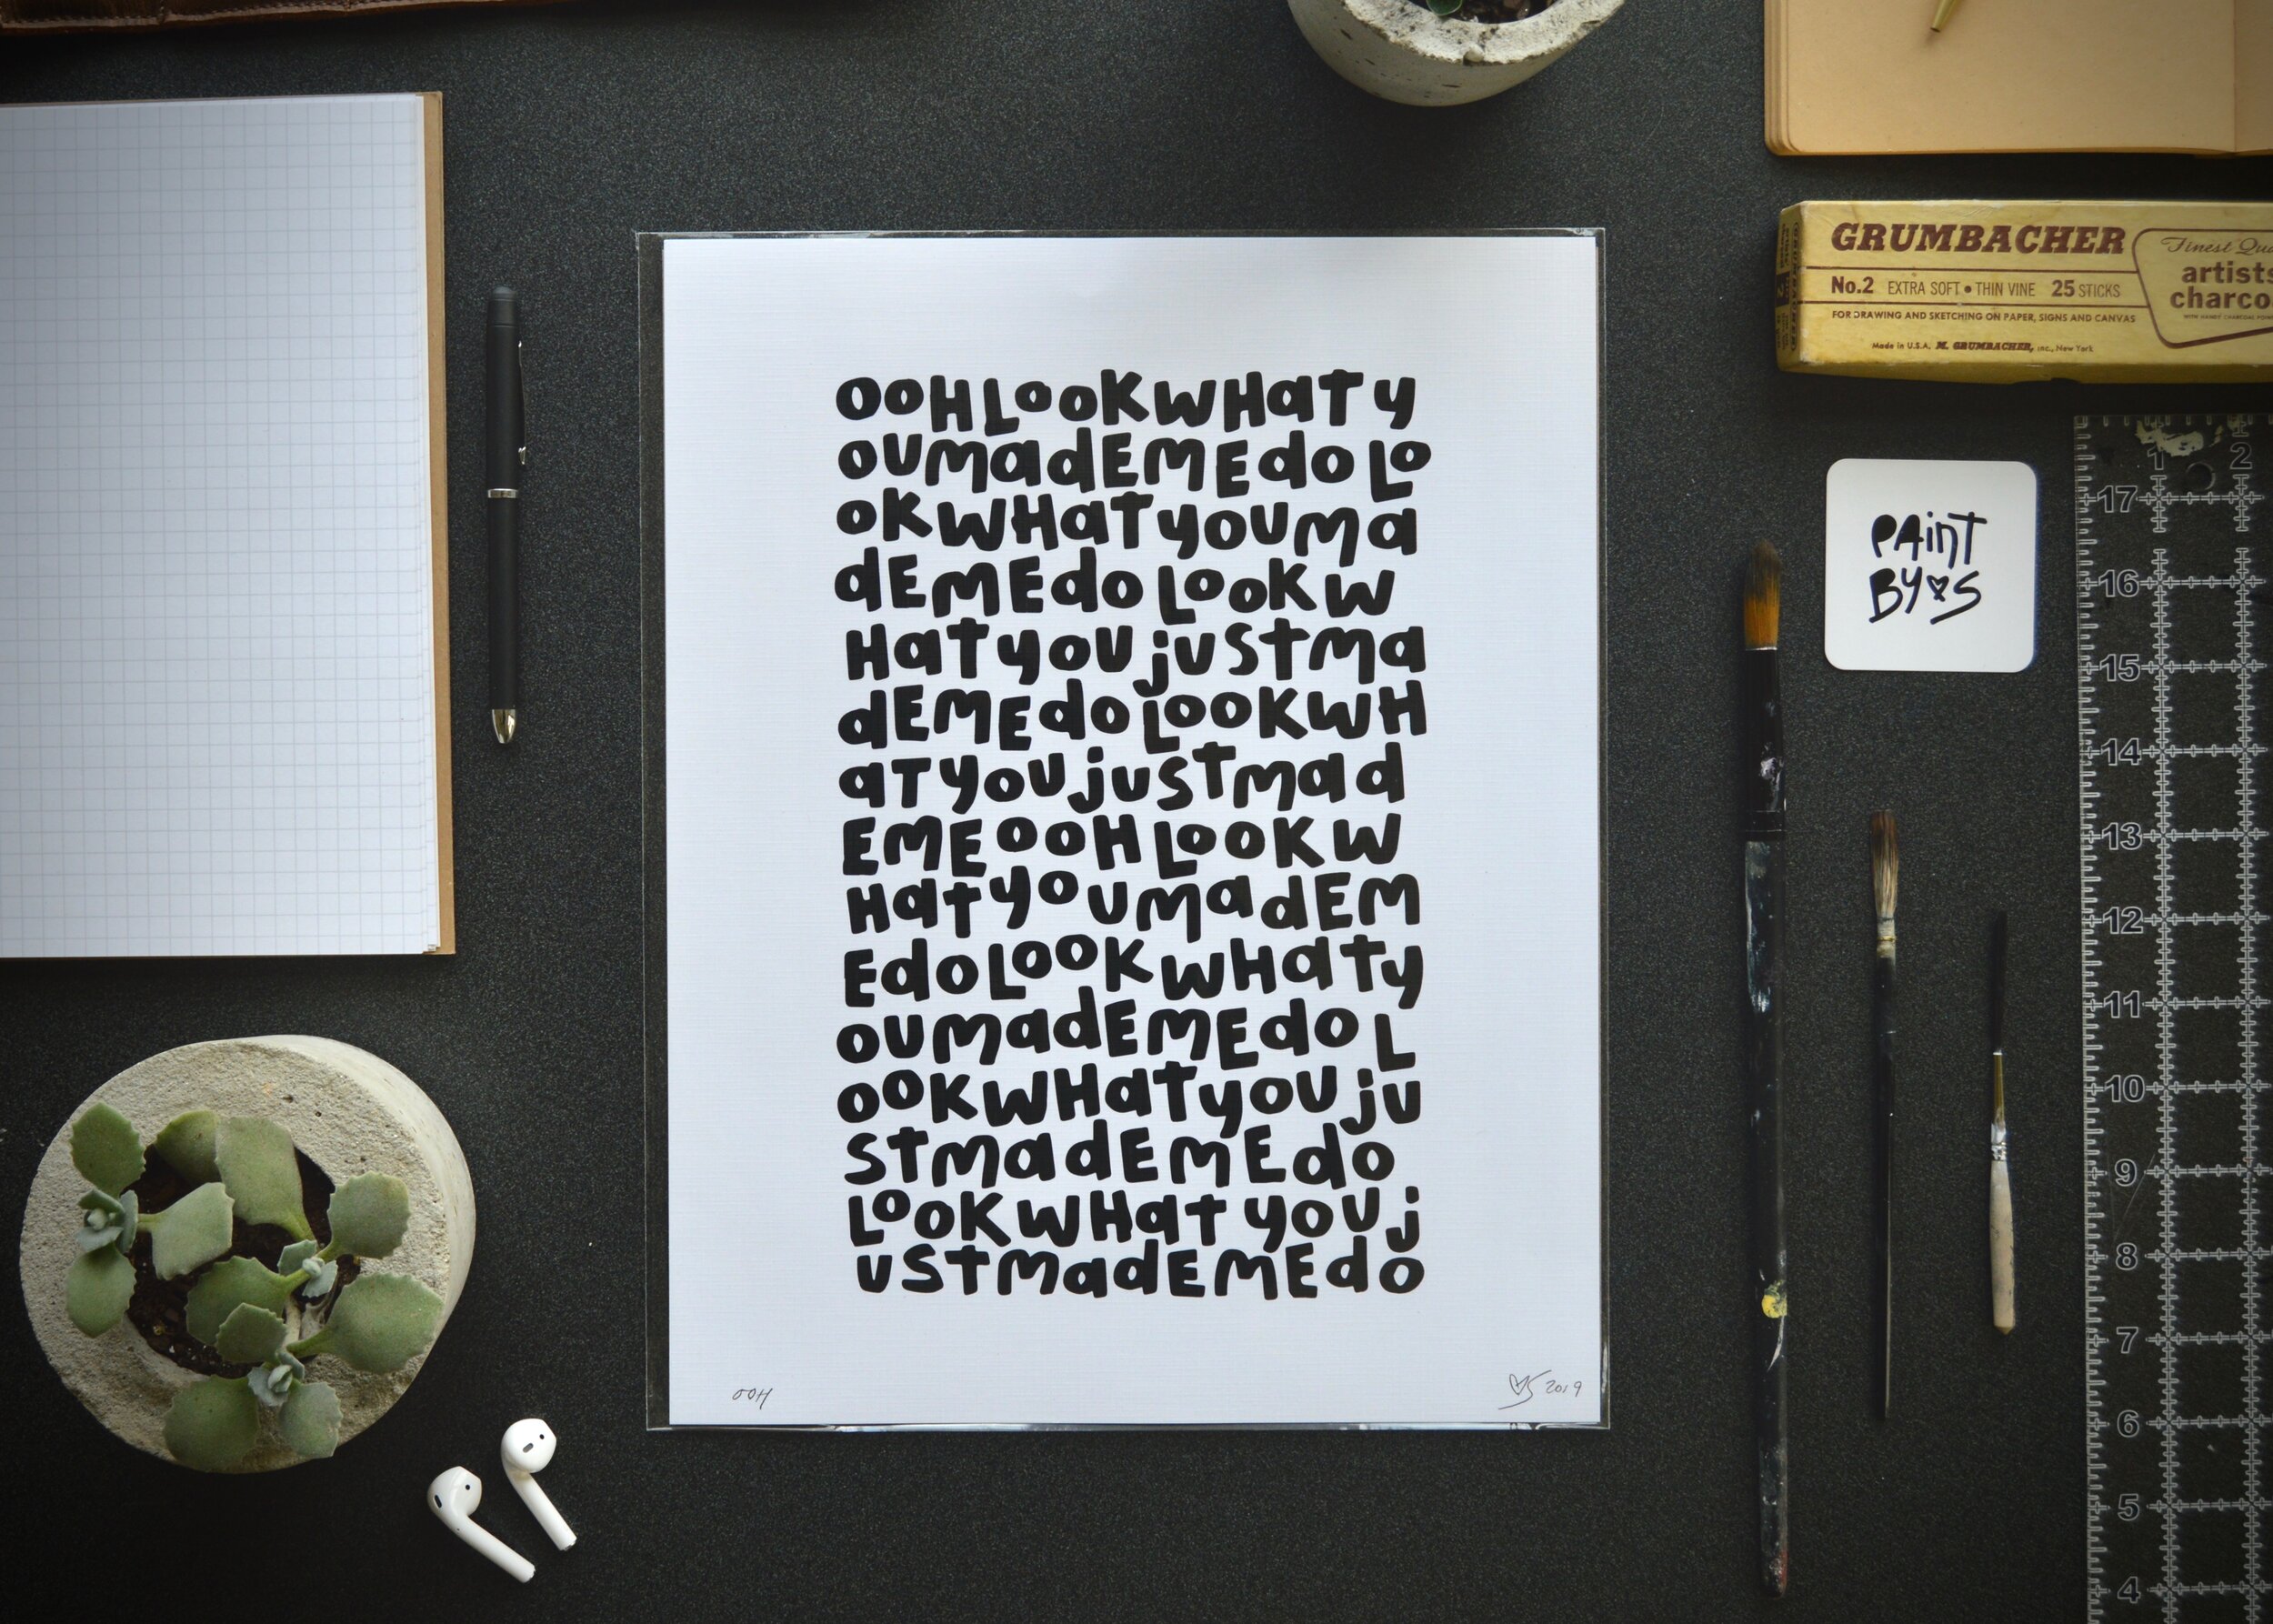 OOHLOOKWHaTy
OUMadEMEdOLO
OKWHaTyOUMa
dEMEdOLOOKW
HaTyOUjUSTMa
dEMEdOLOOKWH
aTyOUjUSTMad
EMEOOHLOOKW
HaTyOUMadEM
EdOLOOKWHaTy
OUMadEMEdOL
OOKWHaTyOUjU
STMadEMEdO
LOOKWHaTyOUj
USTMadEMEdO
OOH
2019
GRUMBACHER
No.2 EXTRA SOFT • THIN VINE 25 STICKS
FOR DRAWING AND SKETCHING ON PAPER, SIGNS AND CANVAS
Made in U.S.A. M. GRUMBACHER, INC., New York
Finest Qu
artists
charco
PAinT
BY♥S
1 2
17
16
15
14
13
12
11
10
9
8
7
6
5
4